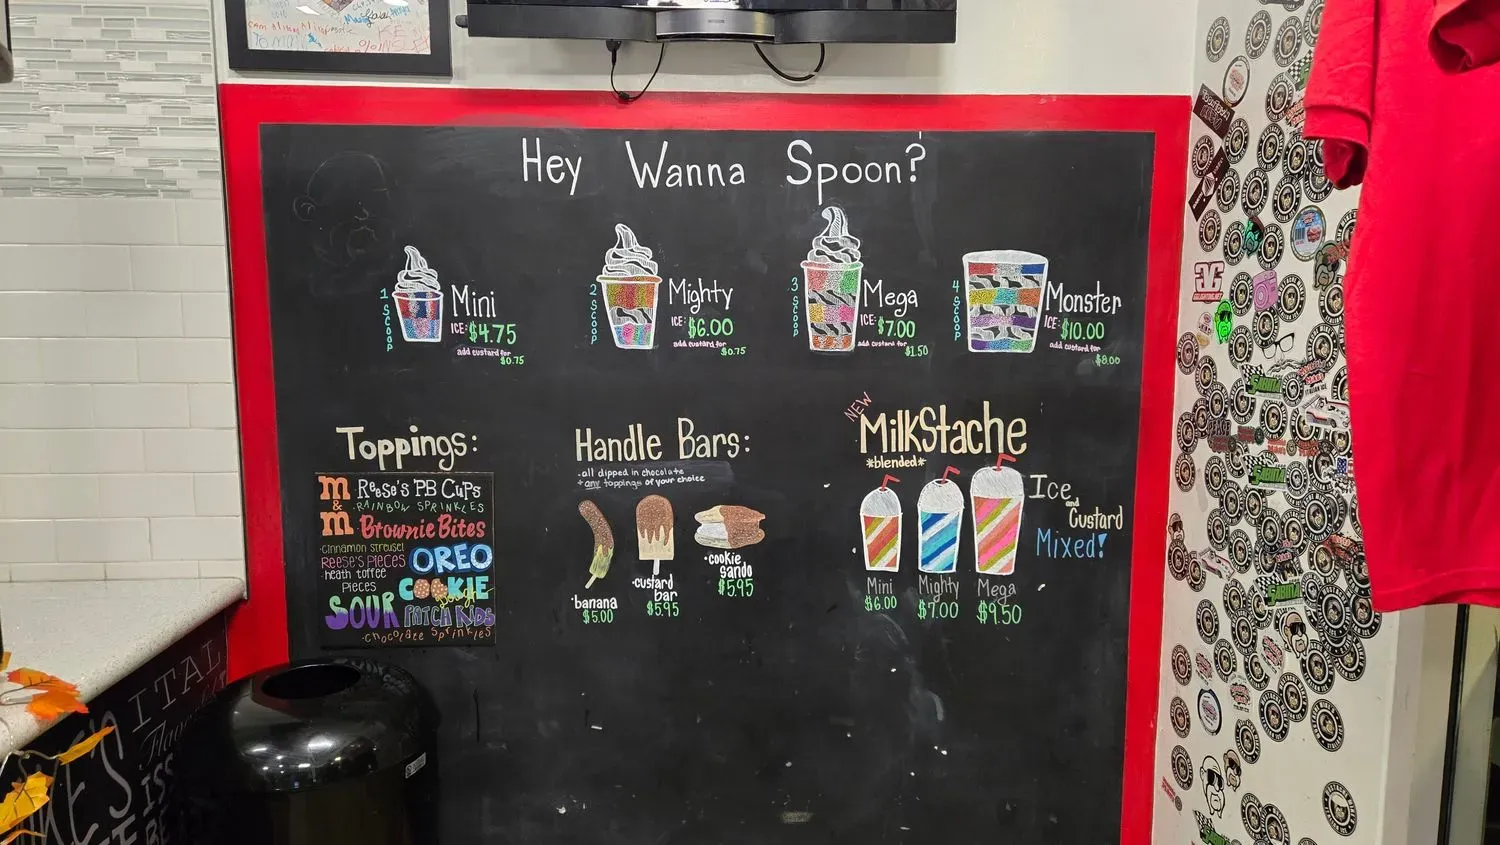 Hey Wanna Spoon?
1 SCOOP
Mini
ICE: $4.75
add custard for
$0.75
2 SCOOP
Mighty
ICE: $6.00
add custard for
$0.75
3 SCOOP
Mega
ICE: $7.00
add custard for
$1.50
4 SCOOP
Monster
ICE: $10.00
add custard for
$8.00
Toppings:
m&m
Reese's PB Cups
·RAINBOW SPRINKLES
Brownie Bites
·Cinnamon Streusel
Reese's Pieces
·heath toffee
Pieces
OREO
COOKIE
Dough
SOUR PATCH KIDS
·chocolate sprinkles
Handle Bars:
·all dipped in chocolate
+ any toppings of your choice
·banana
$5.00
·custard
bar
$5.95
·cookie
sando
$5.95
NEW
MilkStache
*blended*
Ice
and
Custard
Mixed!
Mini
$6.00
Mighty
$7.00
Mega
$9.50
ITAL